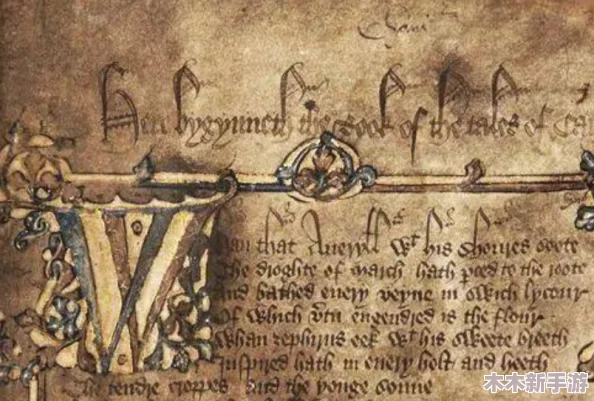 Here bygynneth the Book of the tales of Ca
Whan that Aueryłł wt his shoures soote
The droghte of march hath perced to the roote
And bathed euery veyne in swich lycour
Of which vtu engendred is the flour
Whan zephirus eek wt his sweete breeth
Inspired hath in euery holt and heeth
The tendre croppes and the yonge sonne
木木新手游